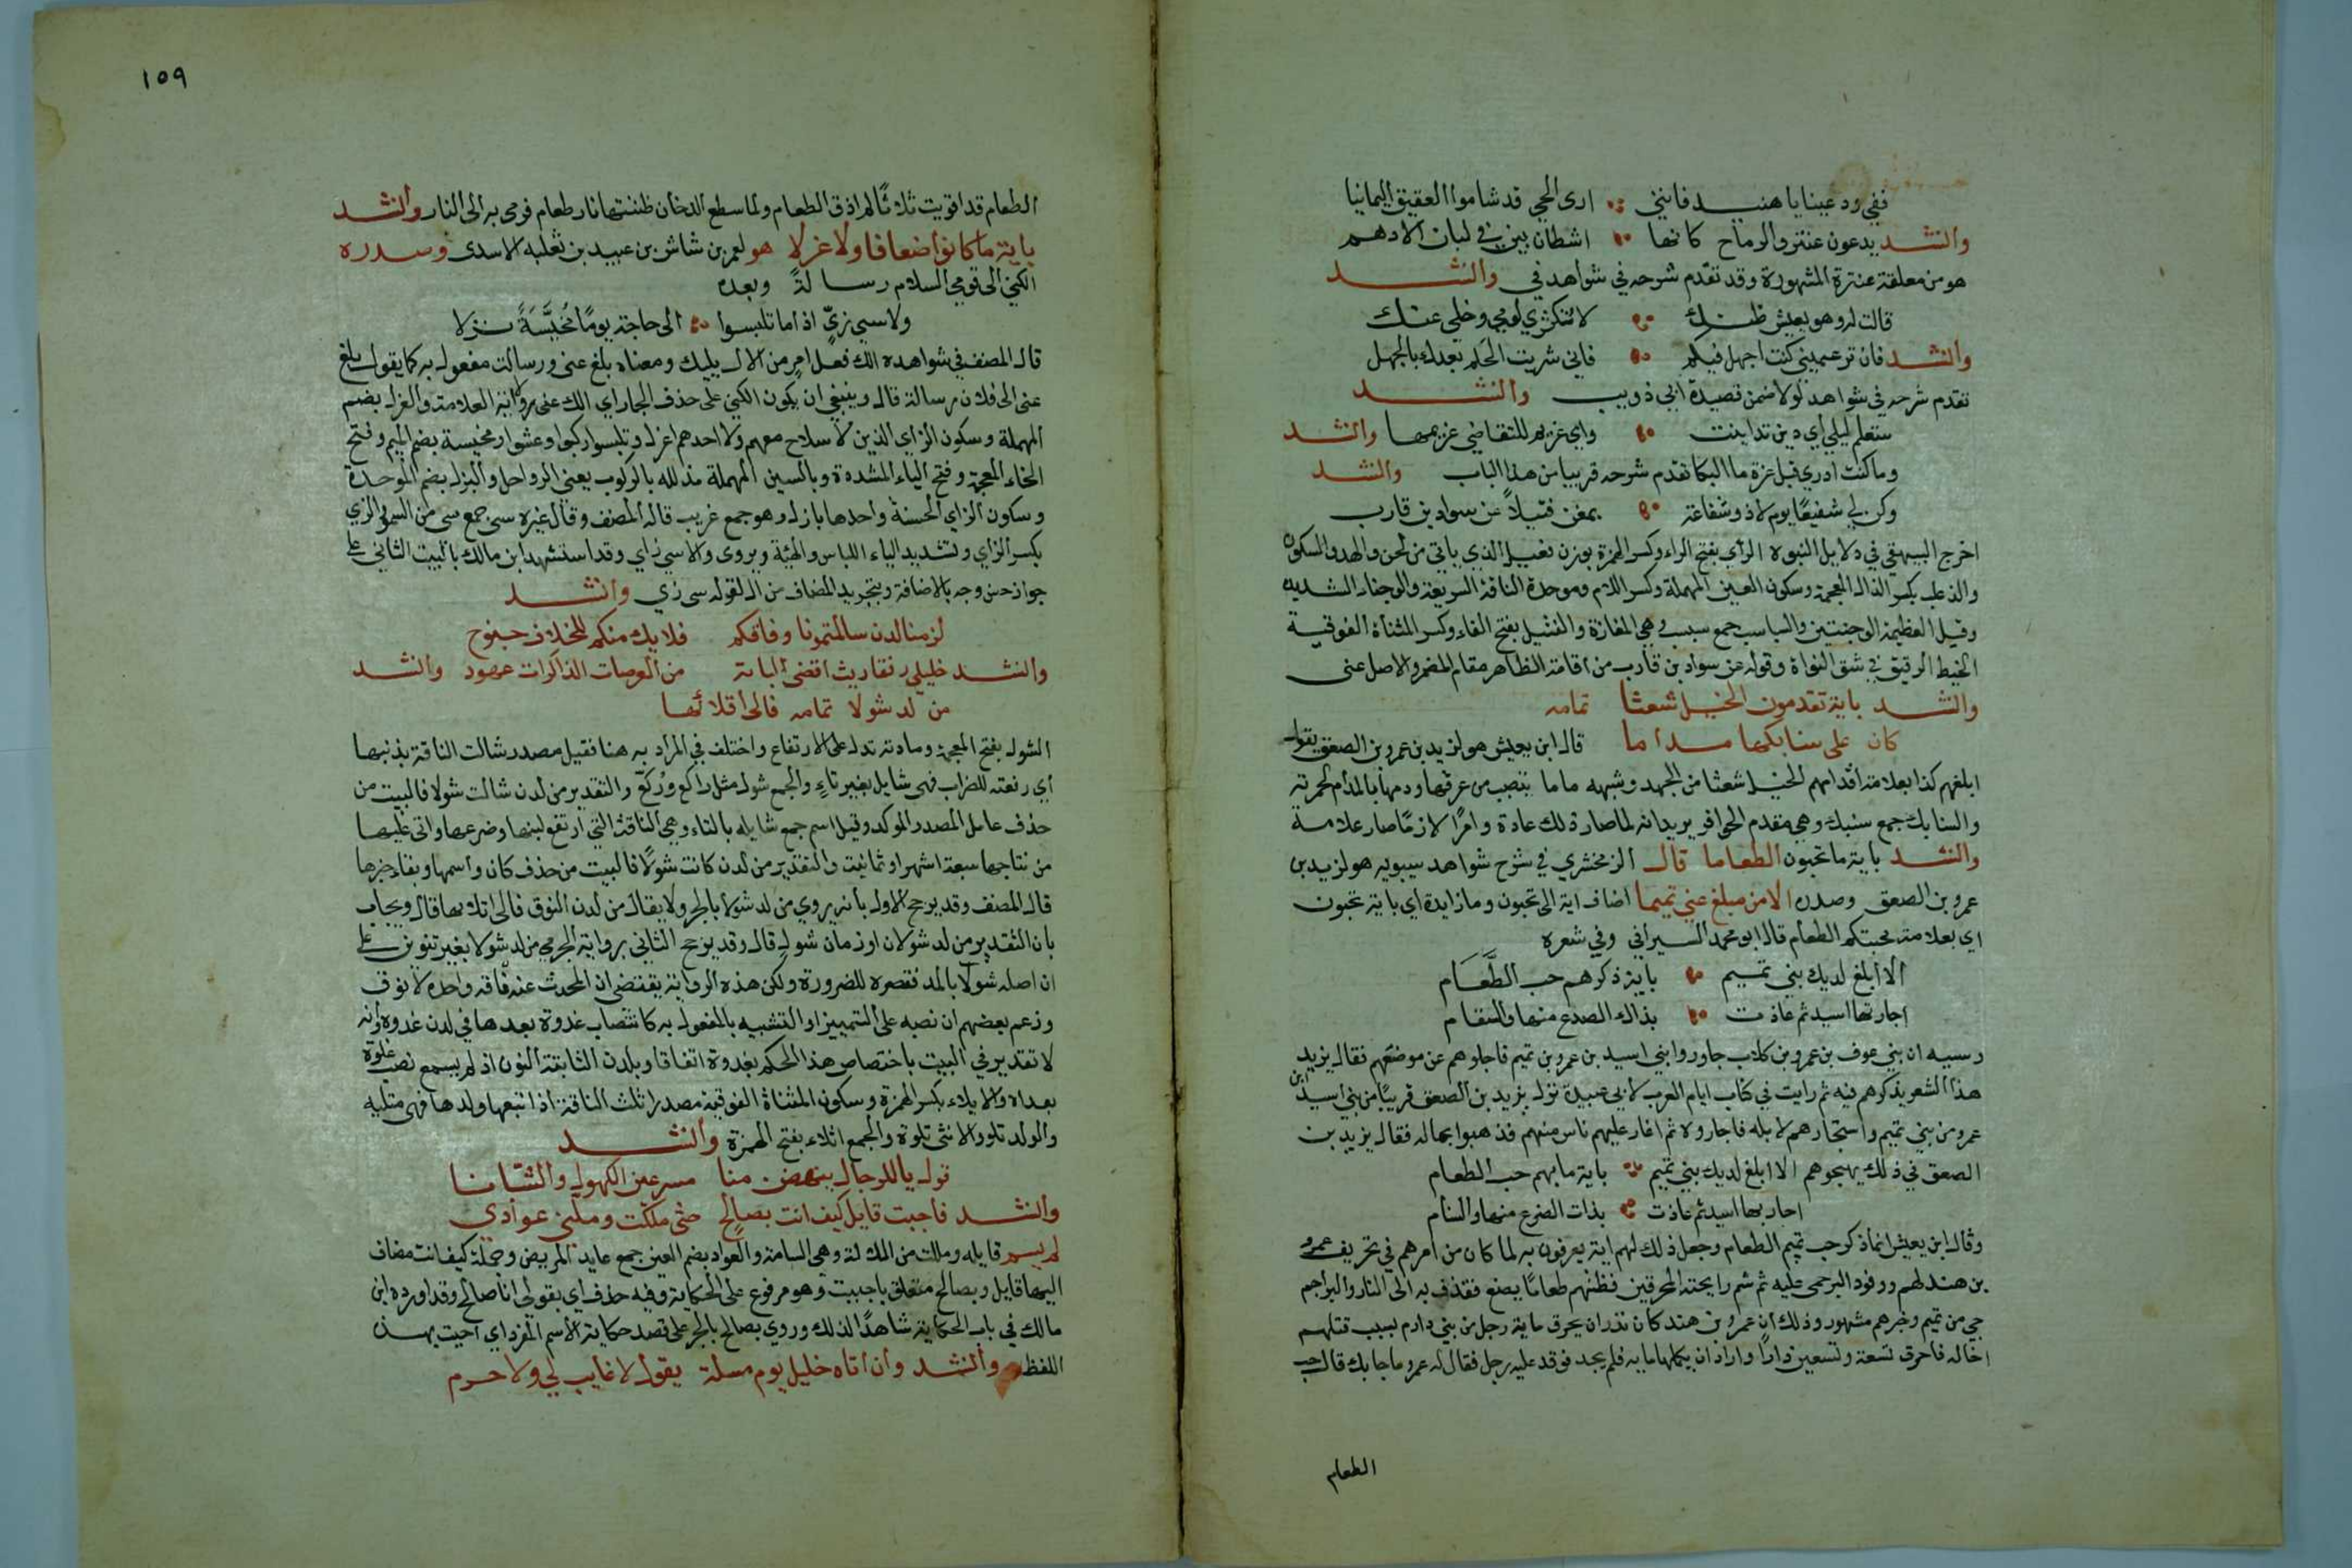 قفي ودعينا يا هنيد فانني ارى الحي قد شاموا العقيق اليمانيا
وانشد يدعون عنتر والرماح كانها اشطان بير في لبان الادهم
هو من معلقة عنترة المشهورة وقد تقدم شرحه في شواهد في وانشد
قالت له وهو بعيش ضنك لا تكثري لومي وخلي عنك
وانشد فان تزعميني كنت اجهل فيكم فاني شريت الحلم بعدك بالجهل
تقدم شرحه في شواهد لولا ضمن قصيدة ابي ذويب وانشد
ستعلم ليلي اي دين تداينت واي غريم للتقاضي غريمها وانشد
وما كنت ادري قبل عزة ما البكا تقدم شرحه قريبا من هذا الباب وانشد
وكن لي شفيعا يوم لا ذو شفاعة بمغن فتيلا عن سواد بن قارب
اخرج البيهقي في دلايل النبوة الرأي بفتح الراء وكسر الهمزة بوزن فعيل الذي ياتي من الجن والهدو السكون
والذعلب بكسر الذال المعجمة وسكون العين المهملة وكسر اللام وموحدة الناقة السريعة والوجناء الشديدة
وقيل العظيمة الوجنتين والسباسب جمع سبسب وهي المفازة والفتيل بفتح الفاء وكسر المثناة الفوقية
الخيط الرقيق في شق النواة وقوله عن سواد بن قارب من اقامة الظاهر مقام المضمر والاصل عني
وانشد باية تقدمون الخيل شعثا تمامه
كان على سنابكها مداما قال ابن يعيش هو لزيد بن عمرو بن الصعق يقول
ابلغهم كذا بعلامة اقدامهم الخيل شعثا من الجهد وشبهه ماما ينصب من عرقها ودمها بالمدام لحمرته
والسنابك جمع سنبك وهي مقدم الحافر يريد انه لما صار ذلك عادة وامرا لازما صار علامة
وانشد باية ما تحبون الطعاما قال الزمخشري في شرح شواهد سيبويه هو لزيد بن
عمرو بن الصعق وصدره الا من مبلغ عني تميما اضاف اية الى تحبون وما زايدة اي باية تحبون
اي بعلامة محبتكم الطعام قال ابو محمد السيرافي وفي شعره
الا ابلغ لديك بني تميم باية ذكرهم حب الطعام
اجارتها اسيد ثم عاذت بذاك الصدع منها والسقام
وسببه ان بني عوف بن عمرو بن كلاب جاوروا بني اسيد بن عمرو بن تميم فاجلوهم عن موضعهم فقال يزيد
هذا الشعر يذكرهم فيه ثم رايت في كتاب ايام العرب لابي عبيدة نزل يزيد بن الصعق قريبا من بني اسيد ابن
عمرو من بني تميم واستجارهم لابله فاجاروه ثم اغار عليهم ناس منهم فذهبوا بماله فقال يزيد بن
الصعق في ذلك يهجوهم الا ابلغ لديك بني تميم باية ما بهم حب الطعام
اجارتها اسيد ثم عاذت بذات الضرع منها والسنام
وقال ابن يعيش انما ذكر حب تميم الطعام وجعل ذلك لهم اية يعرفون به لما كان من امرهم في تحريف عمرو
بن هند لهم ووفود البرجمي عليه ثم شم رايحة المحرقين فظنهم طعاما يصنع فقذف به الى النار والبراجم
حي من تميم وخبرهم مشهور وذلك ان عمرو بن هند كان نذر ان يحرق ماية رجل من بني دارم بسبب قتلهم
اخاله فاحرق تسعة وتسعين دارا واراد ان يكملها ماية فلم يجد فوفد عليه رجل فقال له عمرو ما جا بك قال حب
الطعام
١٥٩
الطعام قد اقويت ثلاثا لم اذق الطعام ولما سطع الدخان ظننتها نار طعام فرمى به الى النار وانشد
باية ما كانوا ضعافا ولا عزلا هو لعمر بن شاش بن عبيد بن ثعلبه الاسدي وصدره
الكني الى قومي السلام رسالة وبعده
ولا سيي زي اذا ما تلبسوا الى حاجة يوما مخيسة بزلا
قال المصنف في شواهده الك فعل امر من الاك يليك ومعناه بلغ عني ورسالت مفعول به كما يقول بلغ
عني الى فلان رسالة قال وينبغي ان يكون الكني على حذف الجار اي الك عني واية العلامة والعزل بضم
المهملة وسكون الزاي الذين لا سلاح معهم ولا احدهم اعزل وتلبسوا ركبوا وعشوا ومخيسة بضم الميم وفتح
الخاء المعجمة وفتح الياء المشددة وبالسين المهملة مذلله بالركوب يعني الرواحل والبزل بضم الموحدة
وسكون الزاي الحسنة واحدها بازل وهو جمع غريب قاله المصنف وقال غيره سيي جمع سي من السو والزي
بكسر الزاي وتشديد الياء اللباس والهيئة ويروى ولا سيي زاي وقد استشهد ابن مالك بالبيت الثاني على
جواز حسن وجه بالاضافة وبتجريد المضاف من ال لقوله سيي زي وانشد
لزمنا لدن سالمتمونا وفاقكم فلا يك منكم للخلاف جنوح
وانشد خليلي رفقا ريث اقضي لبانة من العرصات الذاكرات عهود وانشد
من لد شولا تمامه فالى اتلائها
الشول بفتح المعجمة ومادته تدل على الارتفاع واختلف في المراد به هنا فقيل مصدر شالت الناقة بذنبها
اي رفعته للضراب فهي شايل بغير تاء والجمع شول مثل راكع وركع والتقدير من لدن شالت شولا فالبيت من
حذف عامل المصدر الموكد وقيل اسم جمع شايله بالتاء وهي الناقة التي ارتفع لبنها وضرعها واتى عليها
من نتاجها سبعة اشهر او ثمانية والتقدير من لدن كانت شولا فالبيت من حذف كان واسمها وبقاء خبرها
قال المصنف وقد يرجح الاول بانه يروي من لد شول بالجر ولا يقال من لدن النوق فالى اتلائها قال ويجاب
بان التقدير من لد شولان او زمان شول قال وقد يرجح الثاني برواية الجرمي من لد شولا بغير تنوين على
ان اصله شولا بالمد فقصره للضرورة ولكن هذه الرواية يقتضي ان المحدث عنه ناقة واحدة لا نوق
وزعم بعضهم ان نصبه على التمييز او التشبيه بالمفعول به كانتصاب غدوة بعدها في لدن غدوة وانه
لا تقدير في البيت باختصاص هذا الحكم بغدوة اتفاقا وبلدن الثابتة النون اذ لم يسمع نصب غدوة
بعد لد والايلاء بكسر الهمزة وسكون المثناة الفوقية مصدر اتلت الناقة اذا تبعها ولدها فهي متليه
والولد تلو والانثى تلوة والجمع اتلاء بفتح الهمزة وانشد
قول يا للرجال ينهض منا مسرعين الكهول والشبانا
وانشد فاجبت قايل كيف انت بصالح حتى مللت وملني عوادي
لم يسم قايله ومللت من الملالة وهي السامة والعواد بضم العين جمع عايد المريض وجملة كيف انت مضاف
اليها قايل وبصالح متعلق باجبت وهو مرفوع على الحكاية وفيه حذف اي بقولي انا صالح وقد اورده ابن
مالك في باب الحكاية شاهدا لذلك وروي بصالح بالجر على قصد حكاية الاسم المفرد اي اجبت بهذا
اللفظ وانشد وان اتاه خليل يوم مسلة يقول لا غايب لي ولا حرم